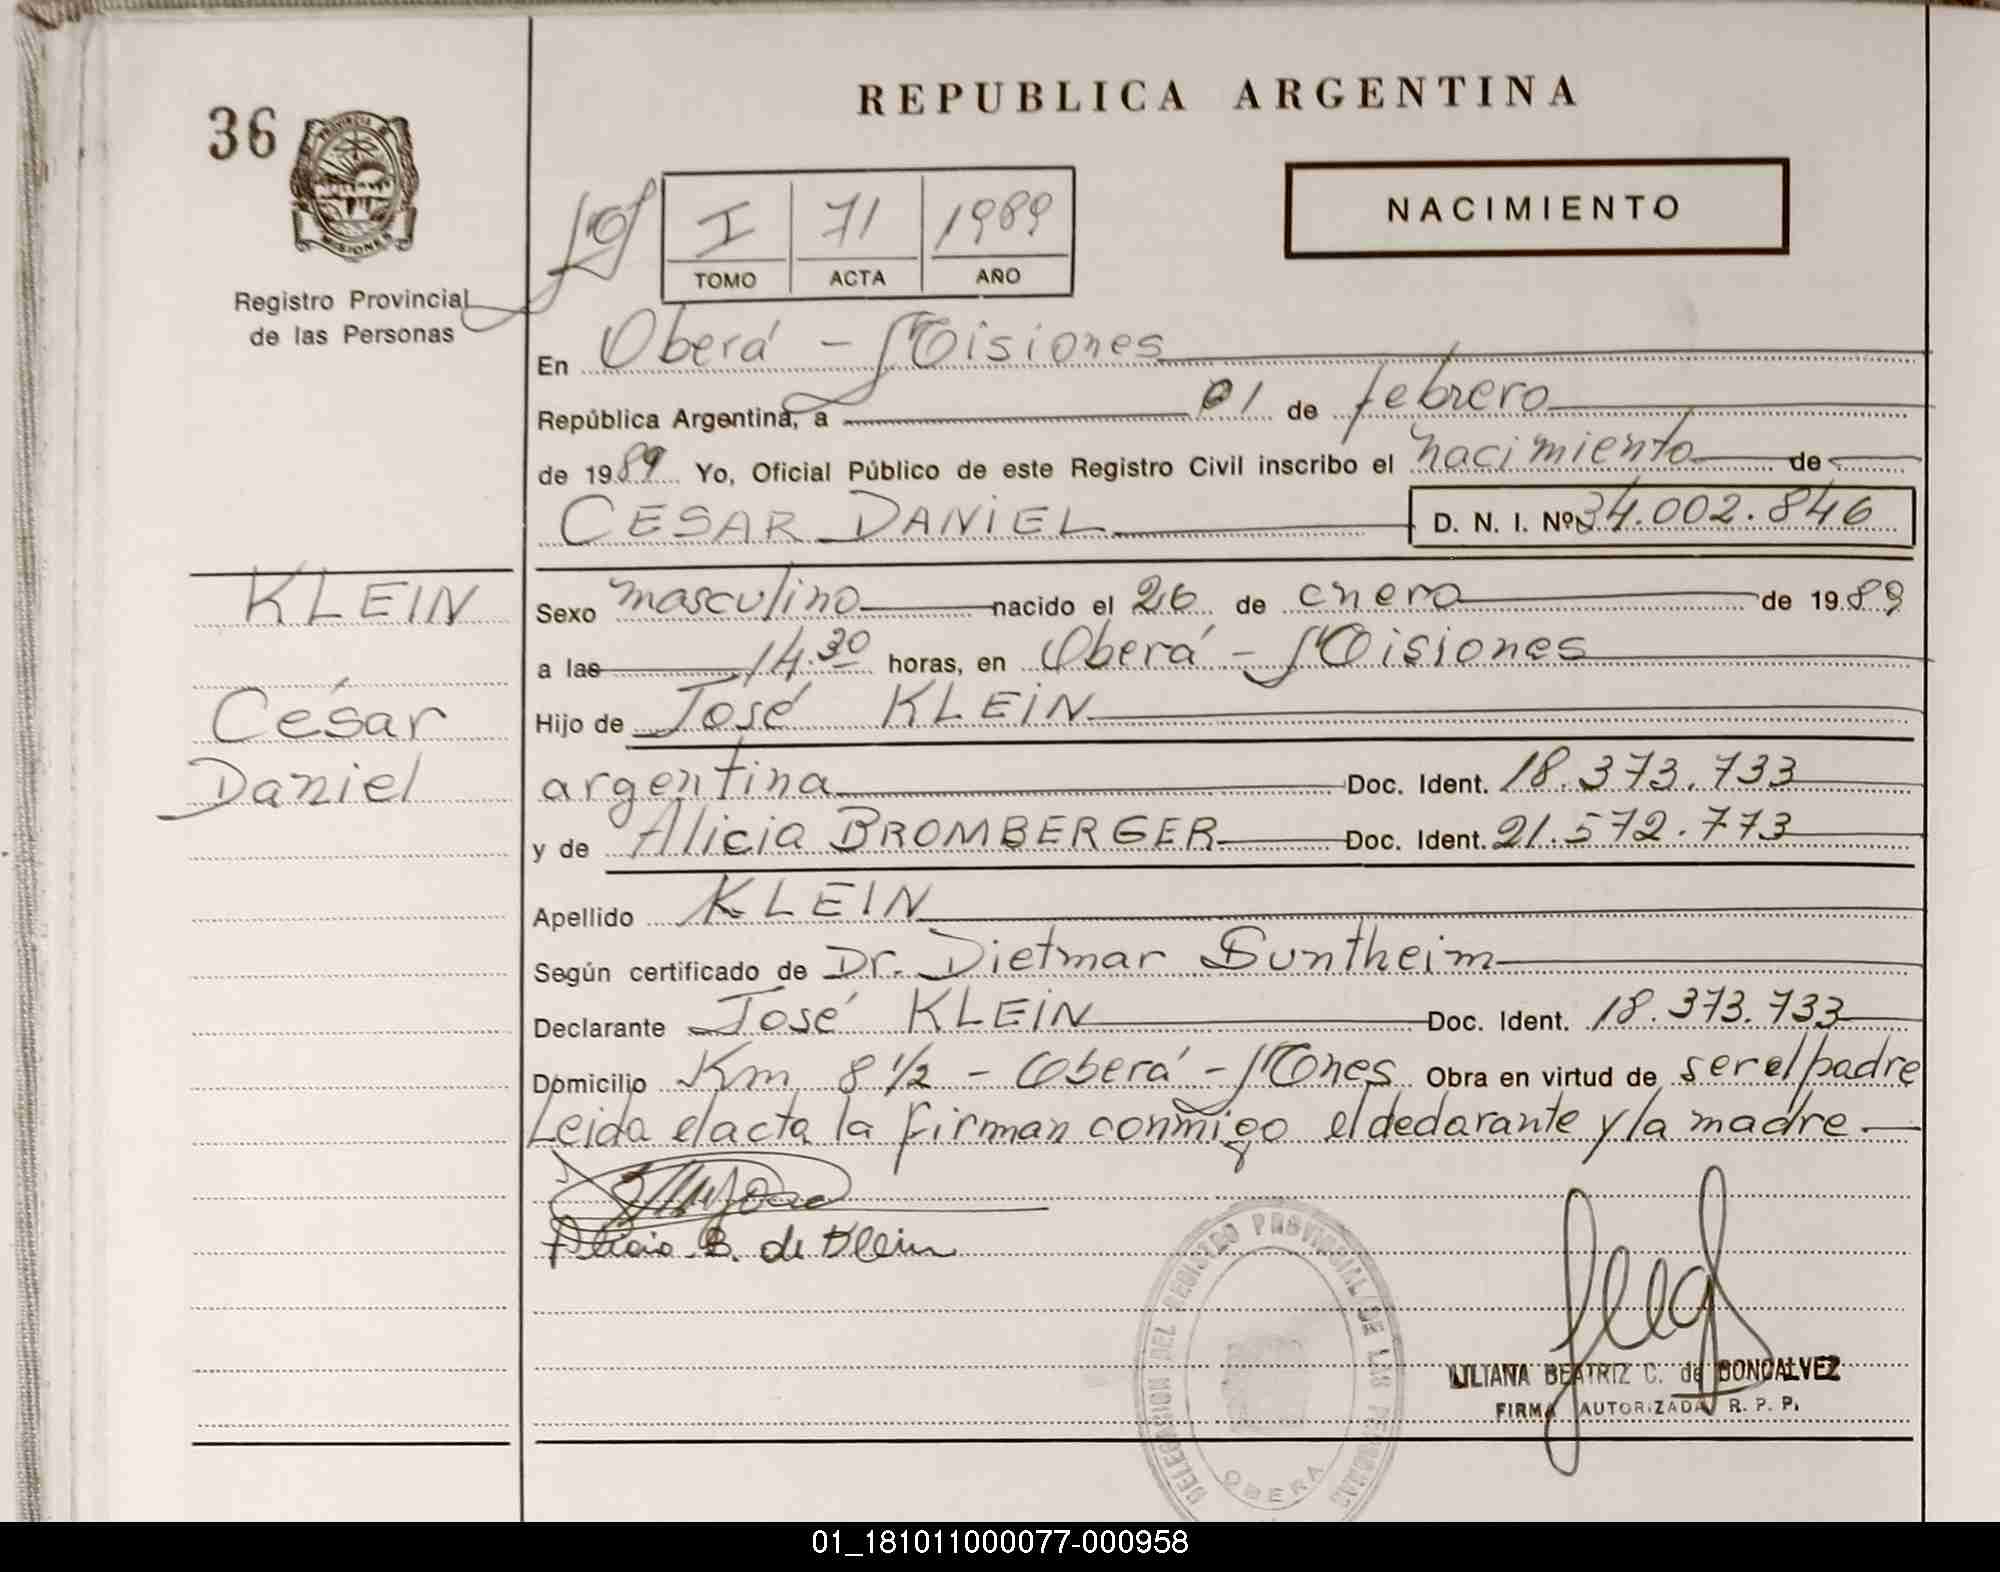 REPUBLICA ARGENTINA
36
PROVINCIA DE
MISIONES
Registro Provincial
de las Personas
NACIMIENTO
I 71 1989
TOMO ACTA AÑO
En Oberá - Misiones
República Argentina, a 01 de febrero
de 1989 Yo, Oficial Público de este Registro Civil inscribo el nacimiento de
CESAR DANIEL D. N. I. Nº 34.002.846
KLEIN
César
Daniel
Sexo masculino nacido el 26 de enero de 1989
a las 14.30 horas, en Oberá - Misiones
Hijo de José KLEIN
argentina Doc. Ident. 18.373.733
y de Alicia BROMBERGER Doc. Ident. 21.572.773
Apellido KLEIN
Según certificado de Dr. Dietmar Suntheim
Declarante José KLEIN Doc. Ident. 18.373.733
Domicilio Km 8 1/2 - Oberá - Mones Obra en virtud de ser el padre
Leida el acta la firman conmigo el declarante y la madre
Alicia B. de Klein
DELEGACION DEL REGISTRO PROVINCIAL DE LAS PERSONAS
OBERA
LILIANA BEATRIZ C. de GONCALVEZ
FIRMA AUTORIZADA R. P. P.
01_181011000077-000958